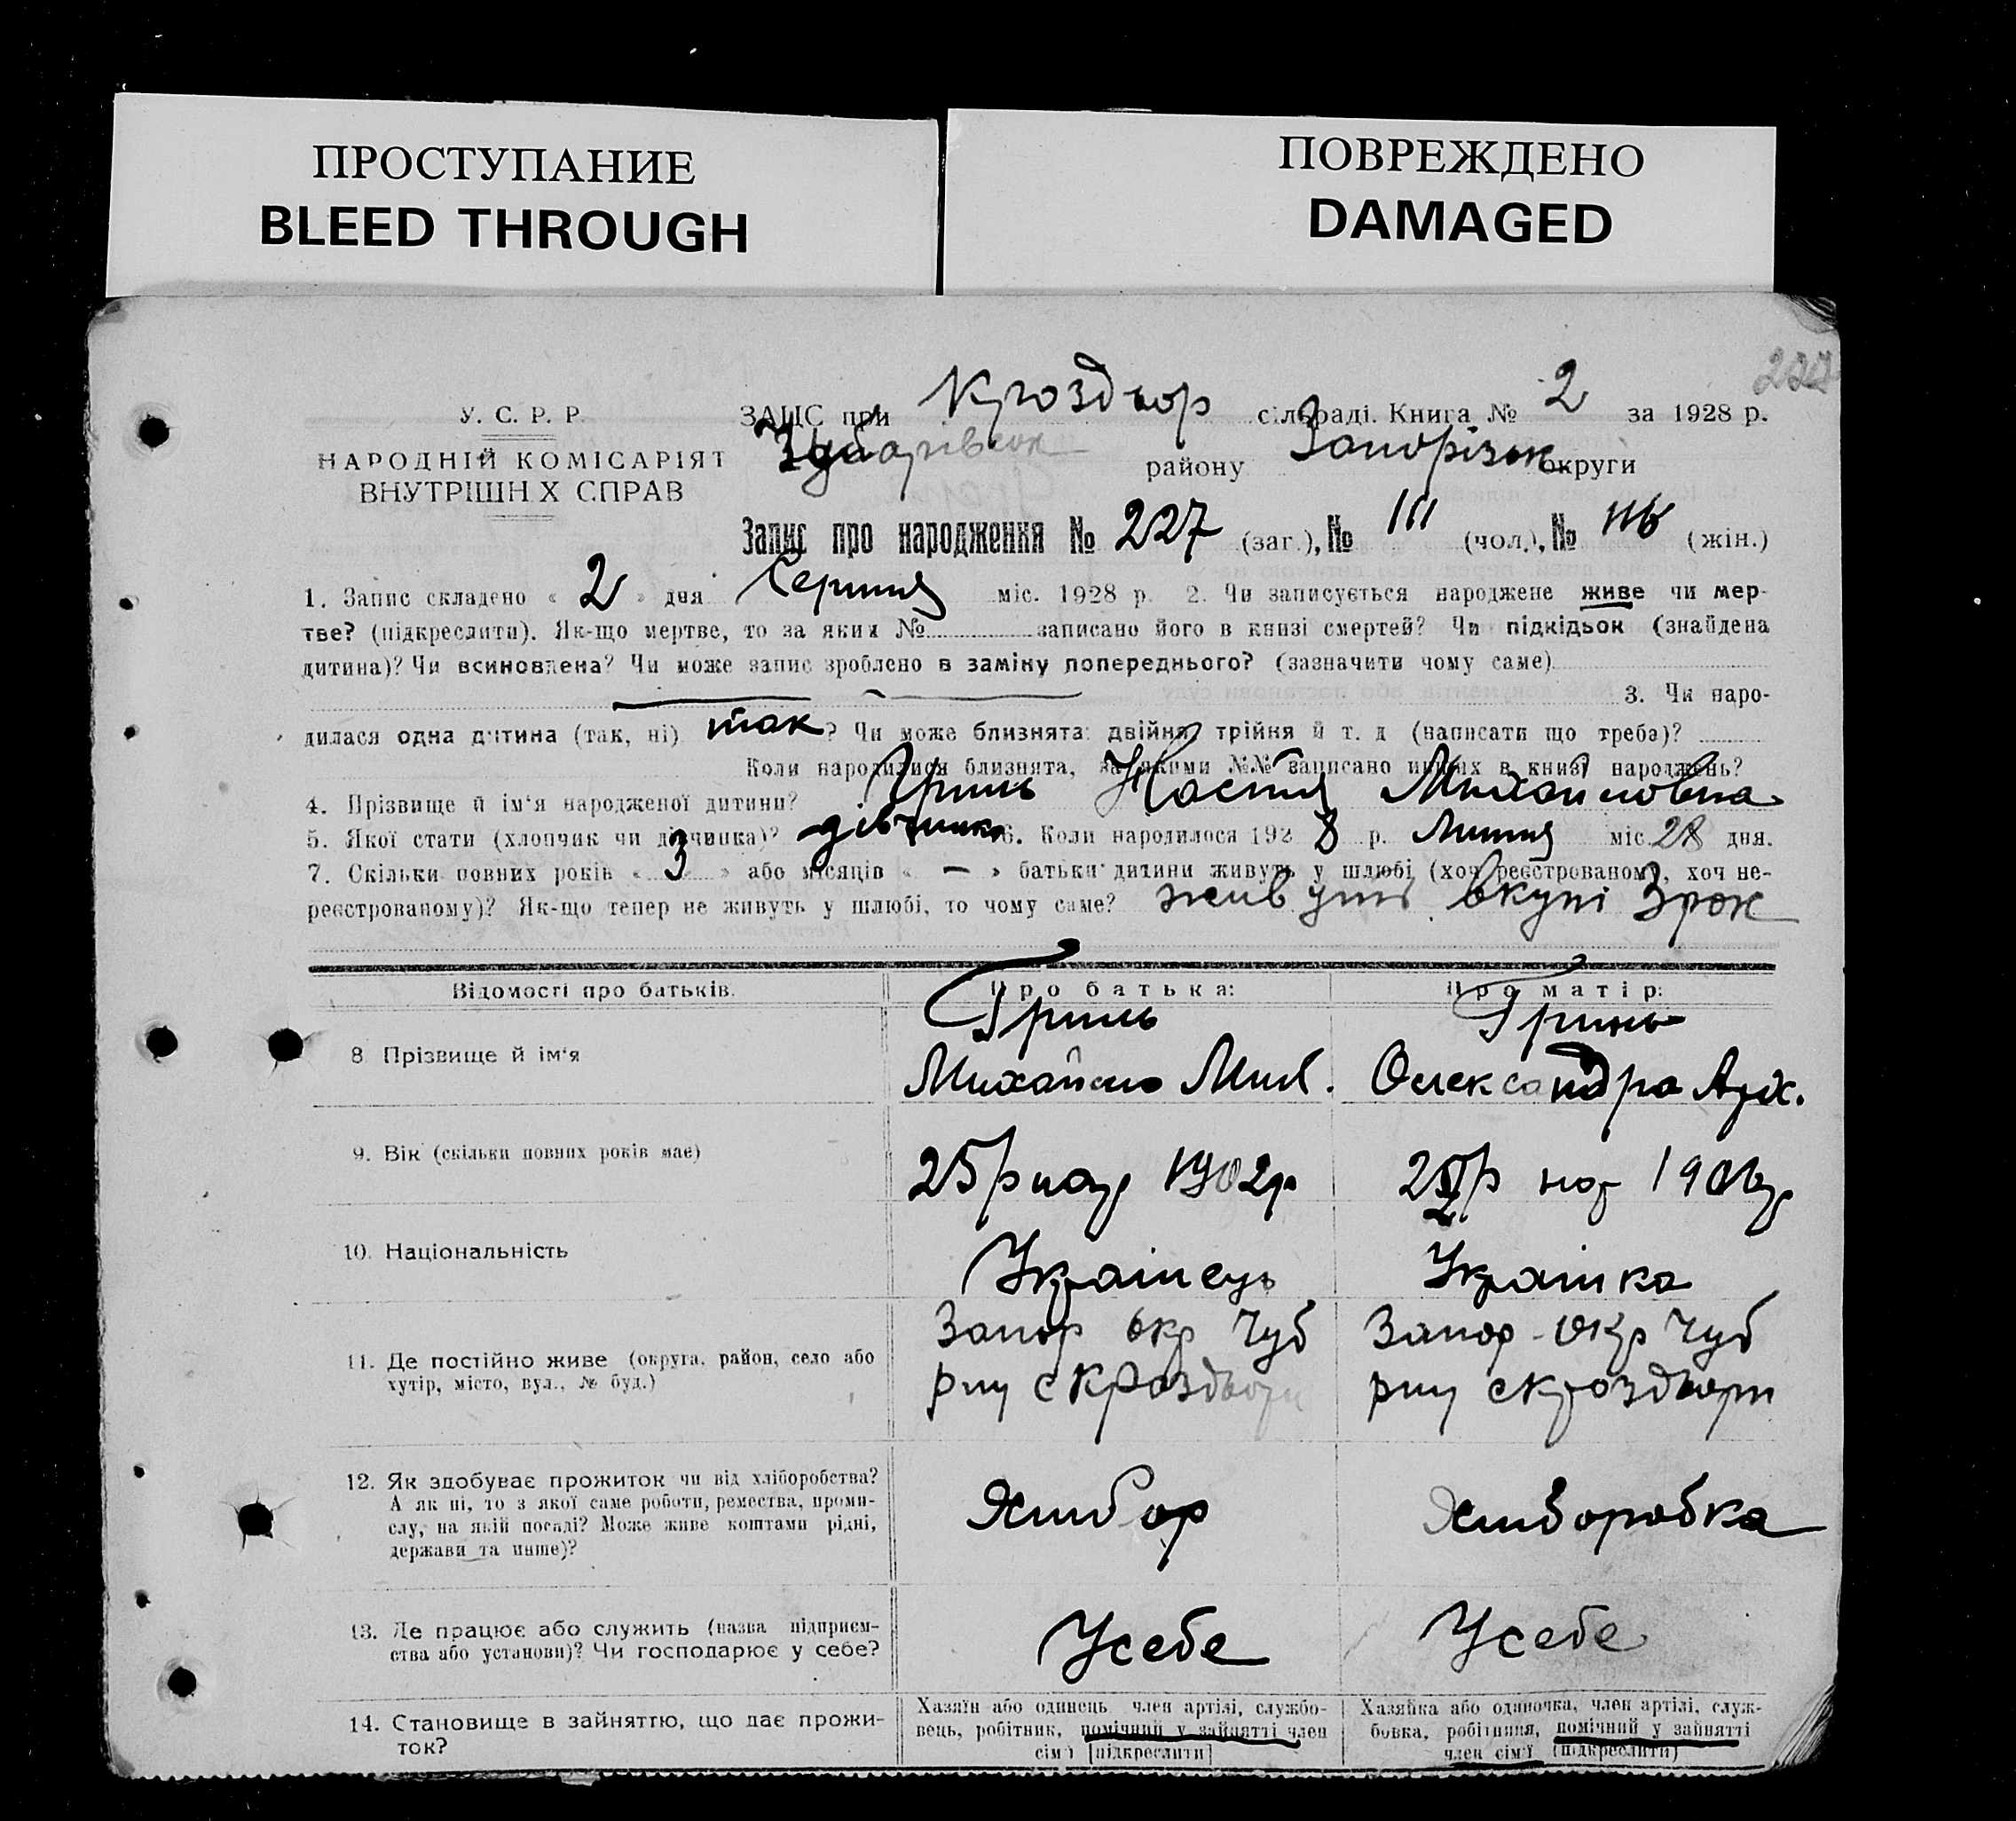 ПРОСТУПАНИЕ
BLEED THROUGH
ПОВРЕЖДЕНО
DAMAGED
227
У. С. Р. Р.
НАРОДНІЙ КОМІСАРІЯТ
ВНУТРІШН Х СПРАВ
ЗАГС при сільраді. Книга № 2 за 1928 р.
району Запорізьк округи
Запис про народження № 227 (заг.), № 111 (чол.), № 116 (жін.)
1. Запис складено « 2 » дня Серпня міс. 1928 р. 2. Чи записується народжене живе чи мер-
тве? (підкреслити). Як-що мертве, то за яким № записано його в книзі смертей? Чи підкідьок (знайдена
дитина)? Чи всиновлена? Чи може запис зроблено в заміну попереднього? (зазначити чому саме)
3. Чи наро-
дилася одна дитина (так, ні) так? Чи може близнята: двійня, трійня й т. д (написати що треба)?
Коли народилися близнята, за якими №№ записано инших в книзі народжень?
4. Прізвище й ім'я народженої дитини? Гринь Настя Михайловна
5. Якої стати (хлопчик чи дівчинка)? дівчинка 6. Коли народилося 192 8 р. Липня міс. 28 дня.
7. Скільки повних років « 3 » або місяців « — » батьки дитини живуть у шлюбі (хоч реєстрованому, хоч не-
реєстрованому)? Як-що тепер не живуть у шлюбі, то чому саме? живуть вкупі 3 рок
Відомості про батьків. Про батька: Про матір:
8 Прізвище й ім'я Гринь Гринь
Михайло Мик. Олександра
9. Вік (скільки повних років має) 25 р 1902р
10. Національність Українець Українка
11. Де постійно живе (округа, район, село або Запор окр Чуб Запор-окр Чуб
хутір, місто, вул., № буд.)
12. Як здобуває прожиток чи від хліборобства? Хлибор Хлиборобка
А як ні, то з якої саме роботи, ремества, проми-
слу, на якій посаді? Може живе коштами рідні,
держави та инше)?
13. Де працює або служить (назва підприєм- Усебе Усебе
ства або установи)? Чи господарює у себе?
14. Становище в зайняттю, що дає прожи-
ток?
Хазяїн або одинець член артілі, службо-
вець, робітник, помічний у зайнятті член
сім'ї [підкреслити]
Хазяйка або одиночка, член артілі, служ-
бовка, робітниця, помічний у зайнятті
член сім'ї (підкреслити)